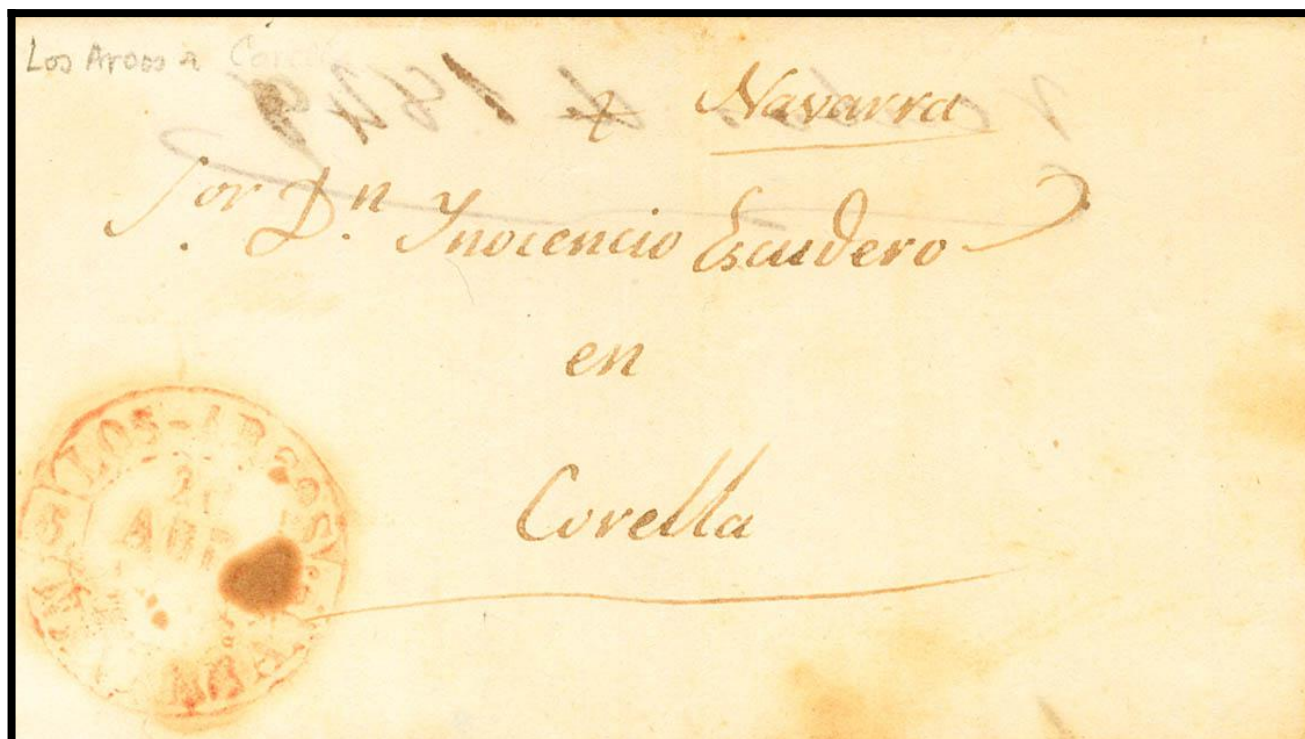 Los Arcos a Corella
Navarra
Sor Dn. Inocencio Escudero
en
Corella
LOS-ARCOS
ABR